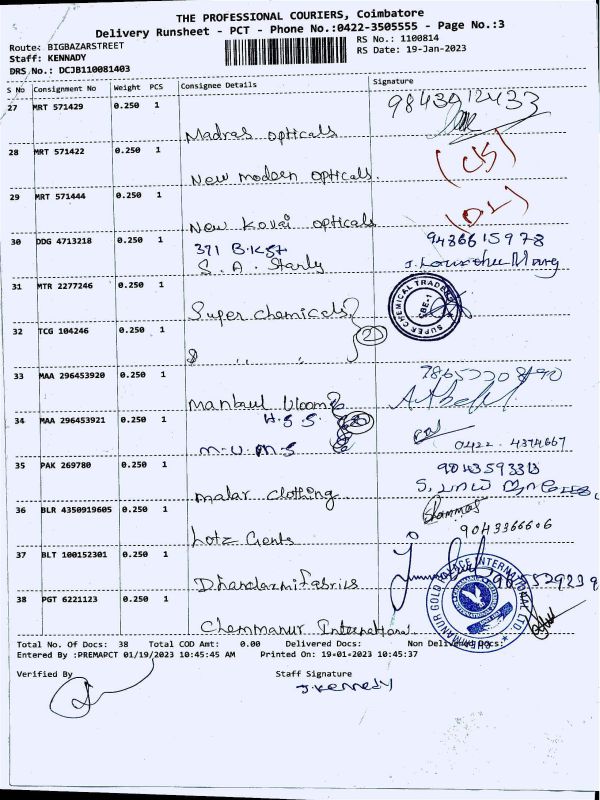 THE PROFESSIONAL COURIERS, Coimbatore
Delivery Runsheet - PCT - Phone No.:0422-3505555 - Page No.:3
Route: BIGBAZARSTREET RS No.: 1100814
Staff: KENNADY RS Date: 19-Jan-2023
DRS.No.: DCJB110081403
S No Consignment No Weight PCS Consignee Details Signature
27 MRT 571429 0.250 1
Madras opticals
28 MRT 571422 0.250 1
New modern opticals.
29 MRT 571444 0.250 1
New Kovai opticals
30 DDG 4713218 0.250 1 391 B.K.St 9486615978
S. A. Starly
31 MTR 2277246 0.250 1
Super chemicals
SUPER CHEMICAL TRADERS CBE-1
32 TCG 104246 0.250 1
2
33 MAA 296453920 0.250 1
34 MAA 296453921 0.250 1 H.S.S.
M.U.M.S 0422 - 4374667
35 PAK 269780 0.250 1
malar clothing
36 BLR 4350919605 0.250 1
Lotz Gents 9043366606
37 BLT 100152301 0.250 1
38 PGT 6221123 0.250 1
Chemmanur International
CHEMMANUR GOLD PALACE INTERNATIONAL LTD.
Total No. Of Docs: 38 Total COD Amt: 0.00 Delivered Docs: Non Delivered Docs:
Entered By :PREMAPCT 01/19/2023 10:45:45 AM Printed On: 19-01-2023 10:45:37
Verified By Staff Signature
J. Kennedy